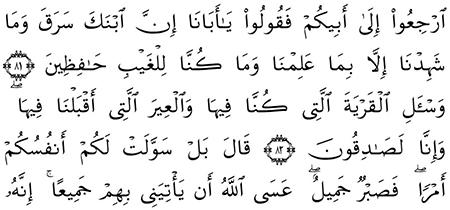 ٱرْجِعُوٓا۟ إِلَىٰٓ أَبِيكُمْ فَقُولُوا۟ يَـٰٓأَبَانَآ إِنَّ ٱبْنَكَ سَرَقَ وَمَا
شَهِدْنَآ إِلَّا بِمَا عَلِمْنَا وَمَا كُنَّا لِلْغَيْبِ حَـٰفِظِينَ ۝٨١
وَسْـَٔلِ ٱلْقَرْيَةَ ٱلَّتِى كُنَّا فِيهَا وَٱلْعِيرَ ٱلَّتِىٓ أَقْبَلْنَا فِيهَا
وَإِنَّا لَصَـٰدِقُونَ ۝٨٢ قَالَ بَلْ سَوَّلَتْ لَكُمْ أَنفُسُكُمْ
أَمْرًا ۖ فَصَبْرٌ جَمِيلٌ ۖ عَسَى ٱللَّهُ أَن يَأْتِيَنِى بِهِمْ جَمِيعًا ۚ إِنَّهُۥ